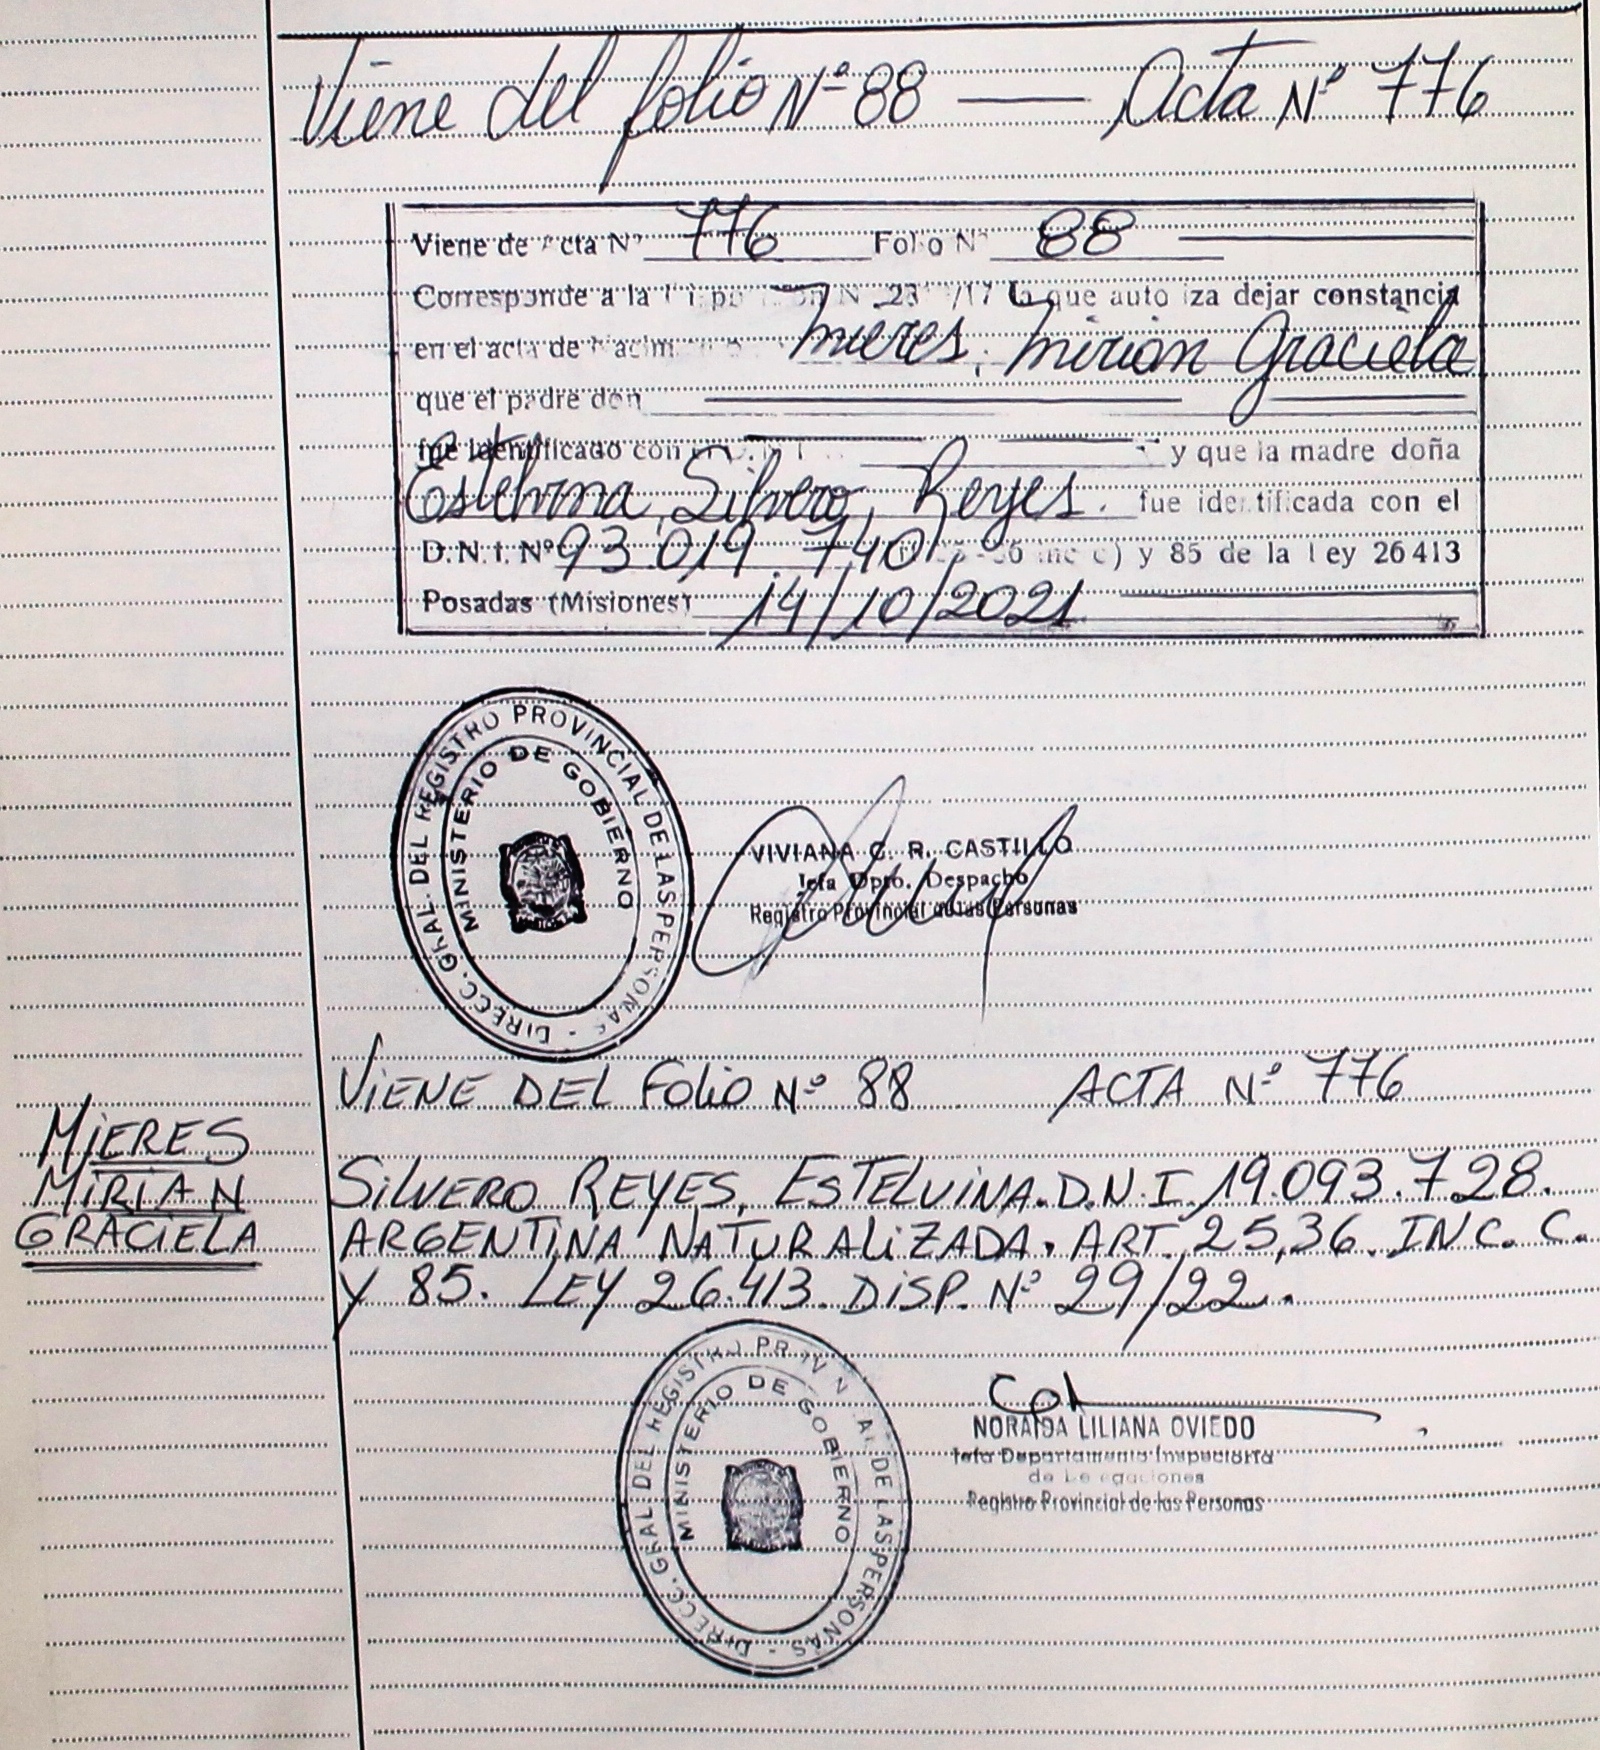 Viene del folio Nº 88 — Acta Nº 776
Viene de Acta Nº 776 Folio Nº 88
Corresponde a la /17 la que autoriza dejar constancia
en el acta de Mieres, Mirian Graciela
que el padre don
fue identificado con el D.N.I. y que la madre doña
Estelvina, Silvero, Reyes. fue identificada con el
D.N.I. Nº 93.019.740 inc c) y 85 de la Ley 26413
Posadas (Misiones) 14/10/2021
DIRECC. GRAL. DEL REGISTRO PROVINCIAL DE LAS PERSONAS -
MINISTERIO DE GOBIERNO
VIVIANA C. R. CASTILLO
Jefa Dpto. Despacho
Registro Provincial de las Personas
VIENE DEL FOLIO Nº 88 ACTA Nº 776
MIERES
MIRIAN
GRACIELA
SILVERO REYES, ESTELVINA. D.N.I. 19.093.728.
ARGENTINA NATURALIZADA. ART. 25,36. INC. C.
Y 85. LEY 26.413. DISP. Nº 29/22.
DIRECC. GRAL DEL REGISTRO PROVINCIAL DE LAS PERSONAS -
MINISTERIO DE GOBIERNO
NORAIDA LILIANA OVIEDO
Jefa Departamento Inspectoria
de Delegaciones
Registro Provincial de las Personas